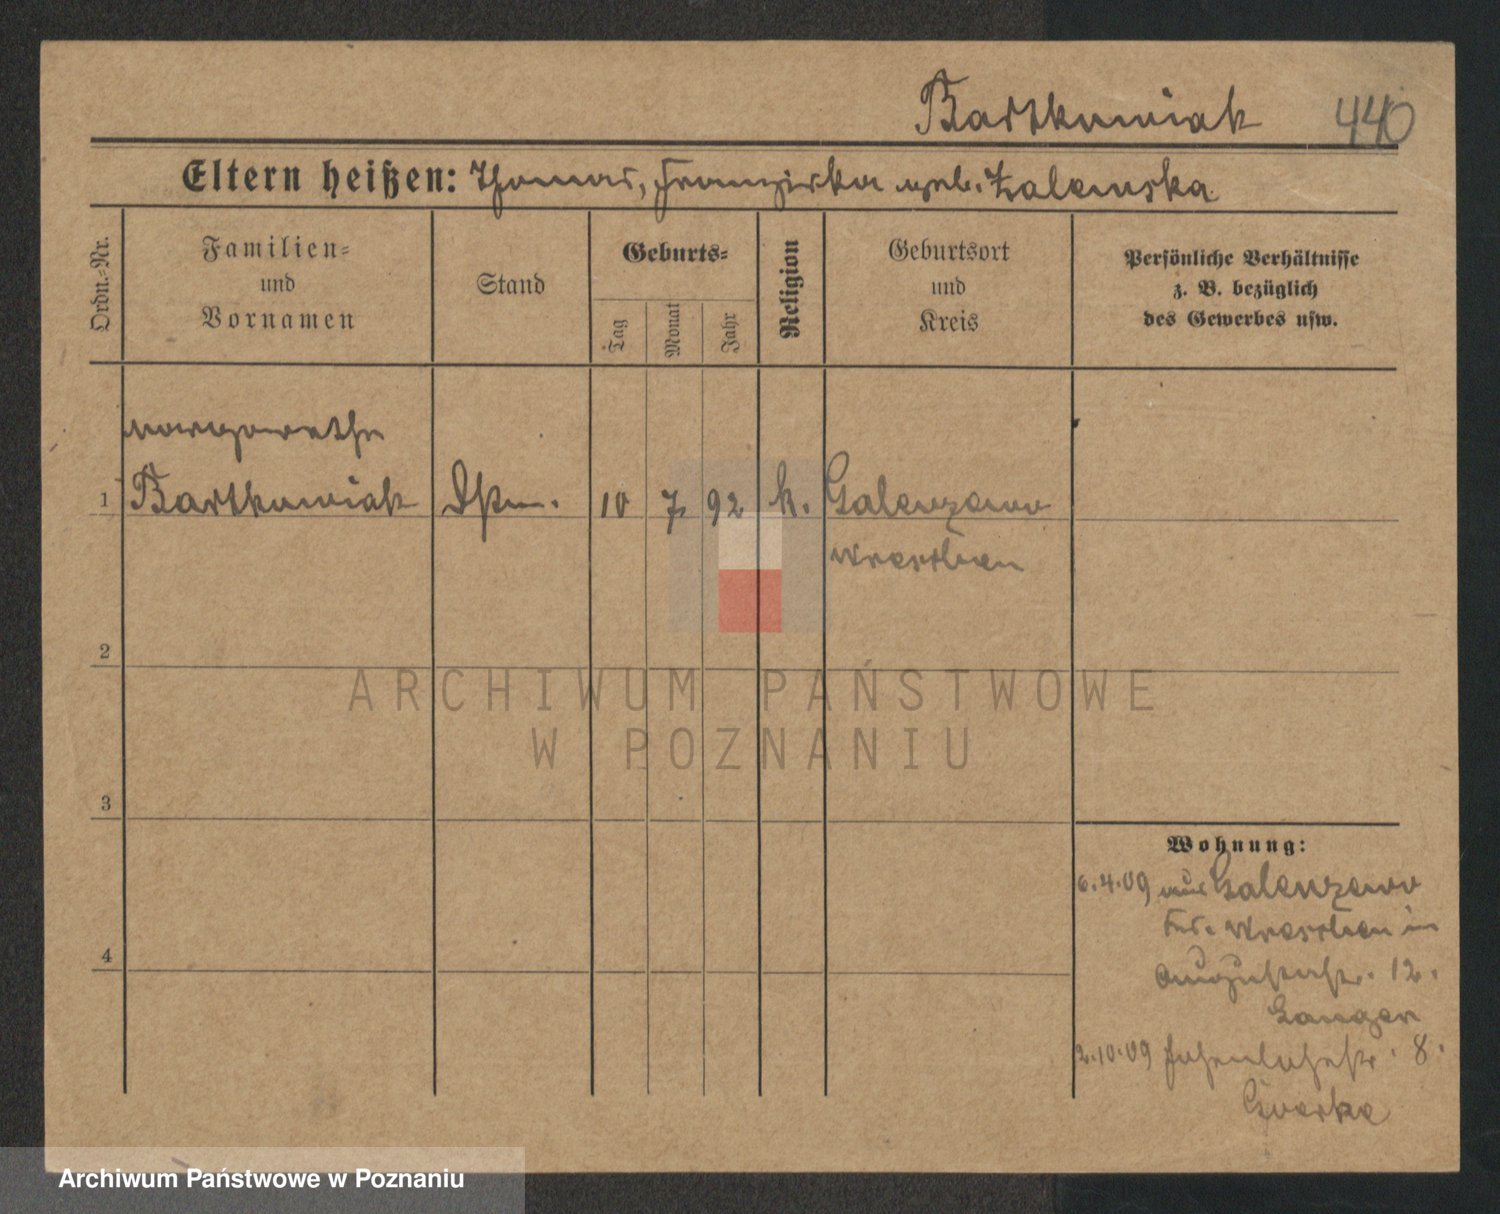 Bartkowiak 440
Eltern heißen: Thomas, Franziska geb. Zalewska
Ordn.=Nr.
Familien=
und
Vornamen
Stand
Geburts=
Tag
Monat
Jahr
Religion
Geburtsort
und
Kreis
Persönliche Verhältnisse
z. B. bezüglich
des Gewerbes usw.
Margarethe
1 Bartkowiak 10 7 92 k. Galenzewo
Wreschen
2
3
4
Wohnung:
6.4.09 aus Galenzewo
Krs. Wreschen in
Augustastr. 12.
Langer
2.10.09 Hohenlohestr. 8.
ARCHIWUM PAŃSTWOWE
W POZNANIU
Archiwum Państwowe w Poznaniu